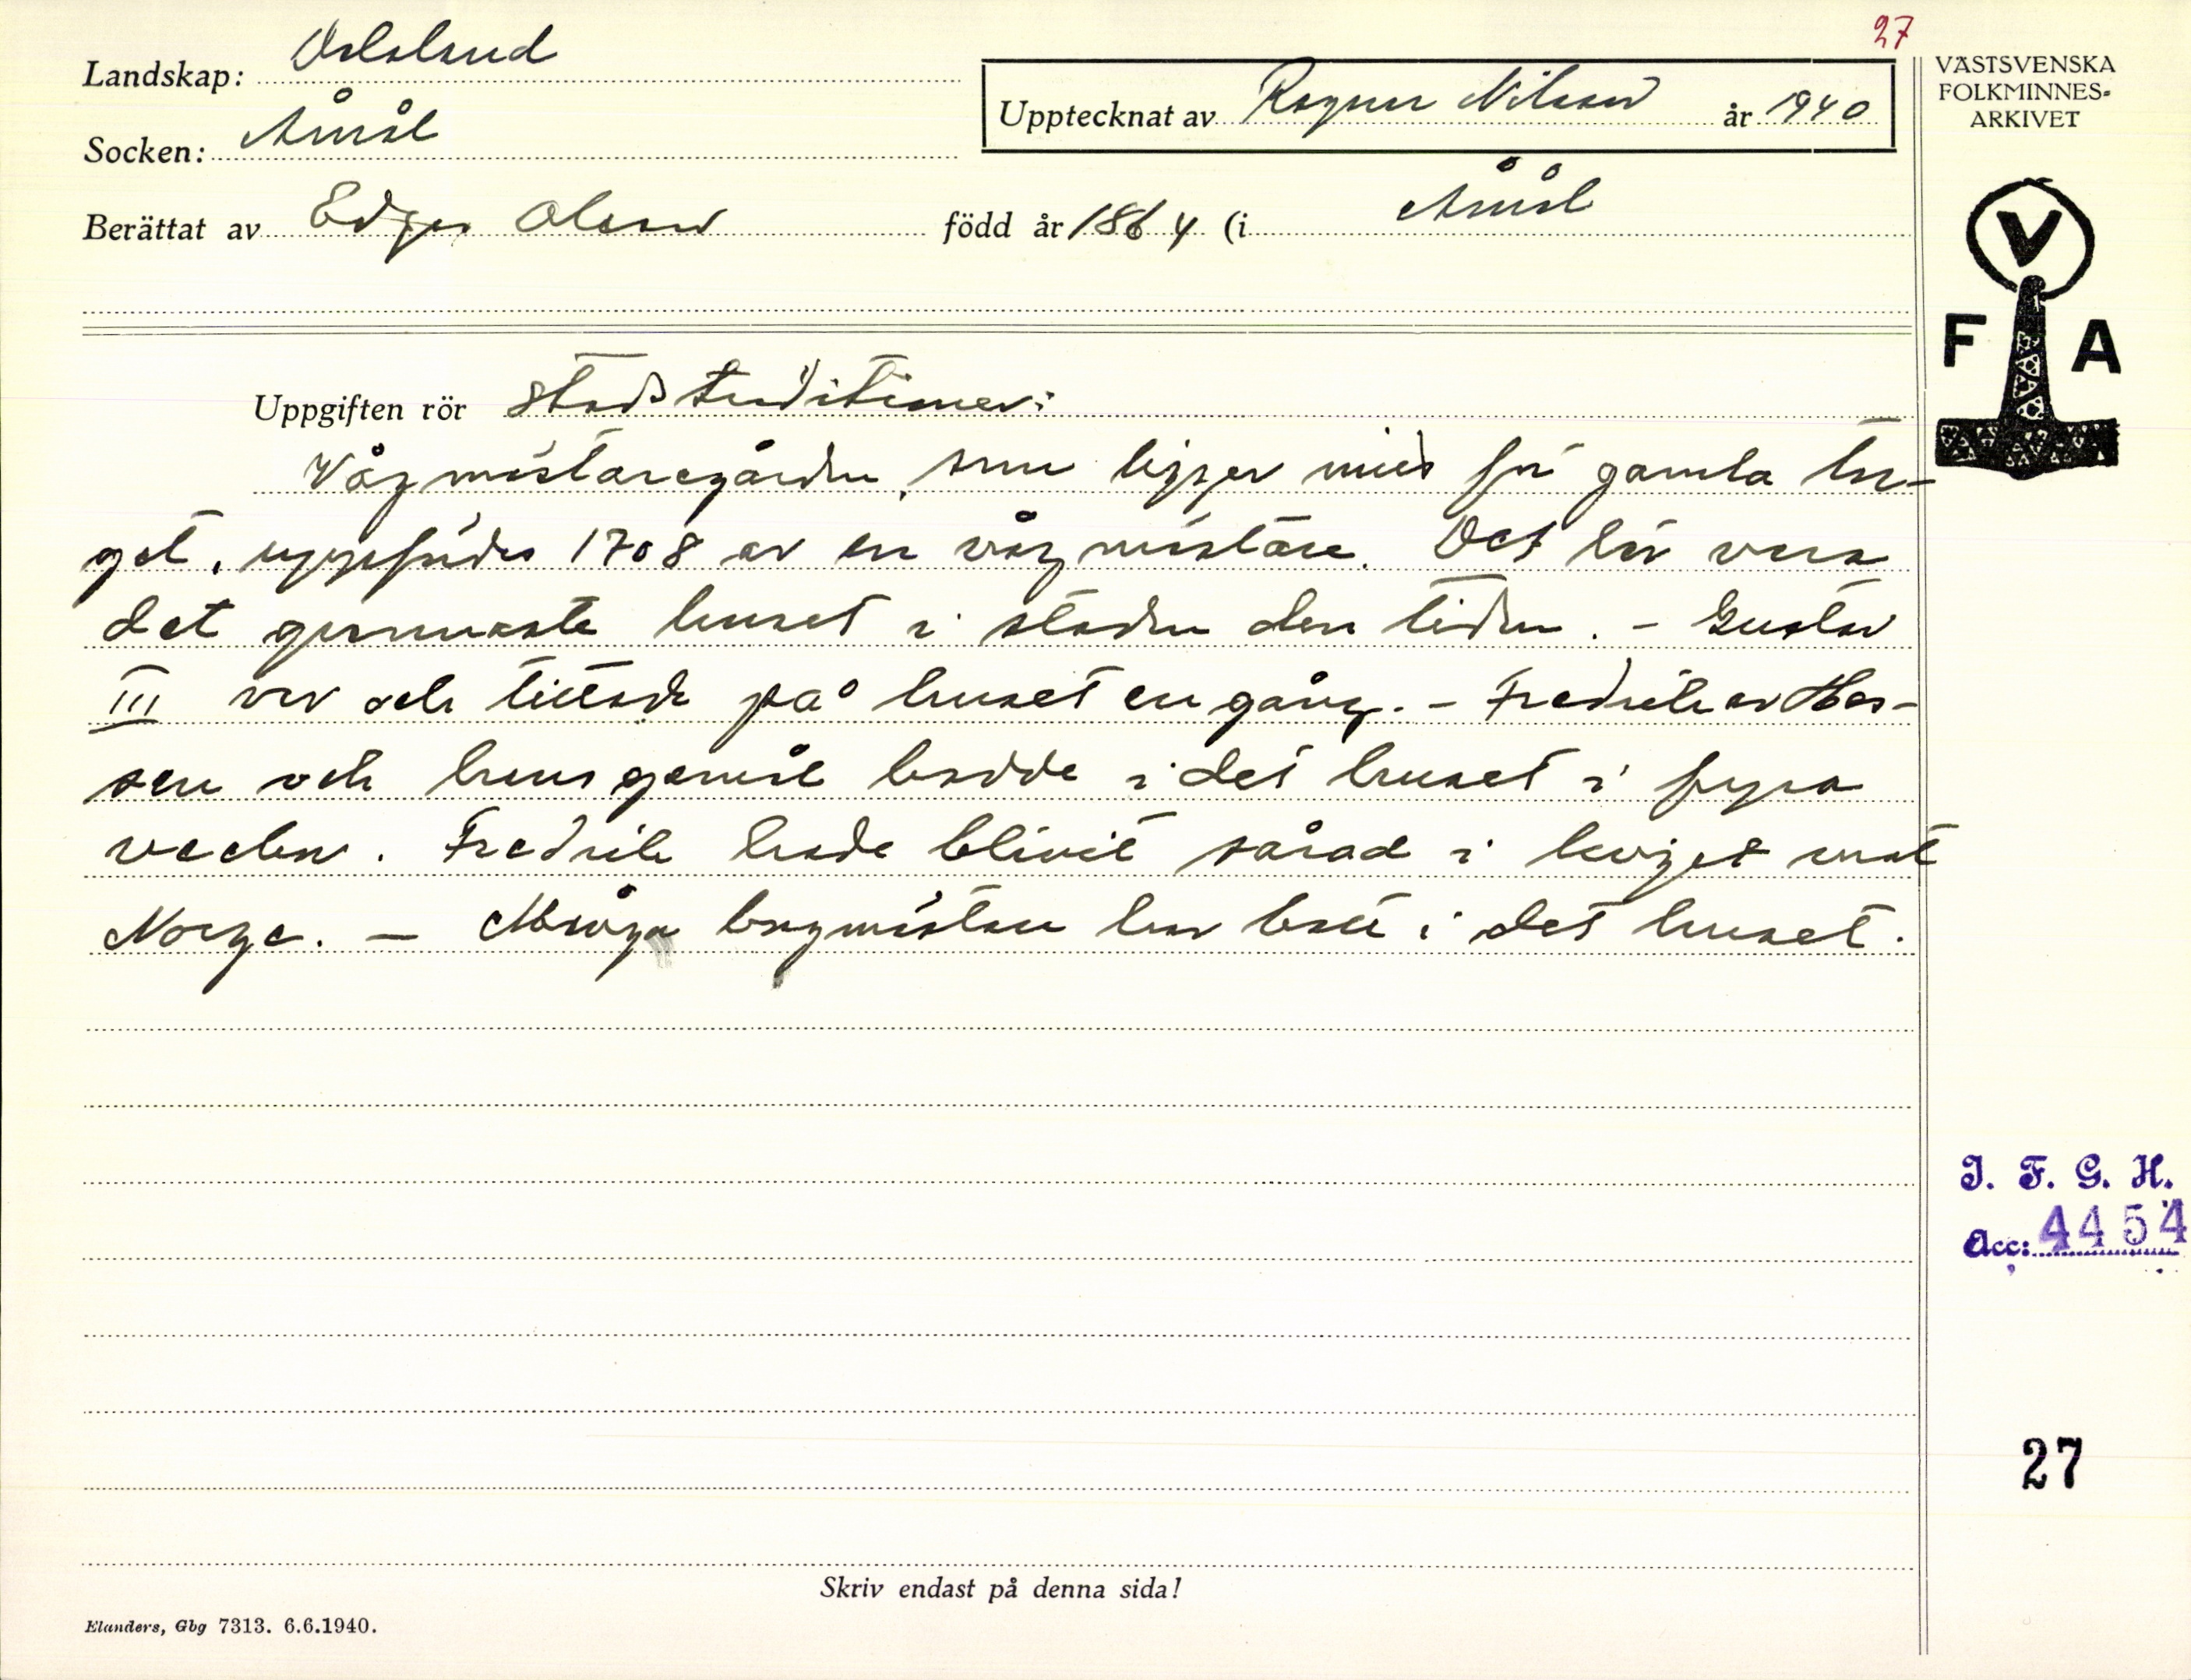 27
Landskap: Dalsland
Socken: Åmål
Upptecknat av Ragnar Nilsson år 1940
Berättat av Edgar Olsson född år 1864 (i Åmål
VÄSTSVENSKA
FOLKMINNES-
ARKIVET
V
F A
Uppgiften rör Stadstraditioner:
Vågmästaregården, som ligger mitt för gamla tor-
get, uppfördes 1708 av en vågmästare. Det lär vara
det grannaste huset i staden den tiden. – Gustav
III var och tittade på huset en gång. – Fredrik av Hes-
sen och hans gemål bodde i det huset i fyra
veckor. Fredrik hade blivit sårad i kriget mot
Norge. – Många borgmästare har bott i det huset.
I. F. G. H.
Acc: 4454
27
Skriv endast på denna sida!
Elanders, Gbg 7313. 6.6.1940.